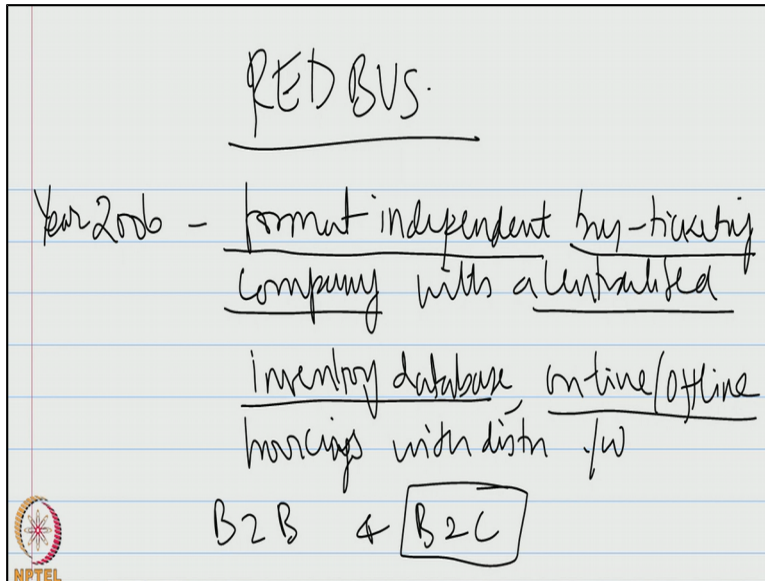 RED BUS.
Year 2006 - format independent bus-ticketing
company with a centralised
inventory database, online/offline
bookings with distn n/w
B2B & B2C
NPTEL